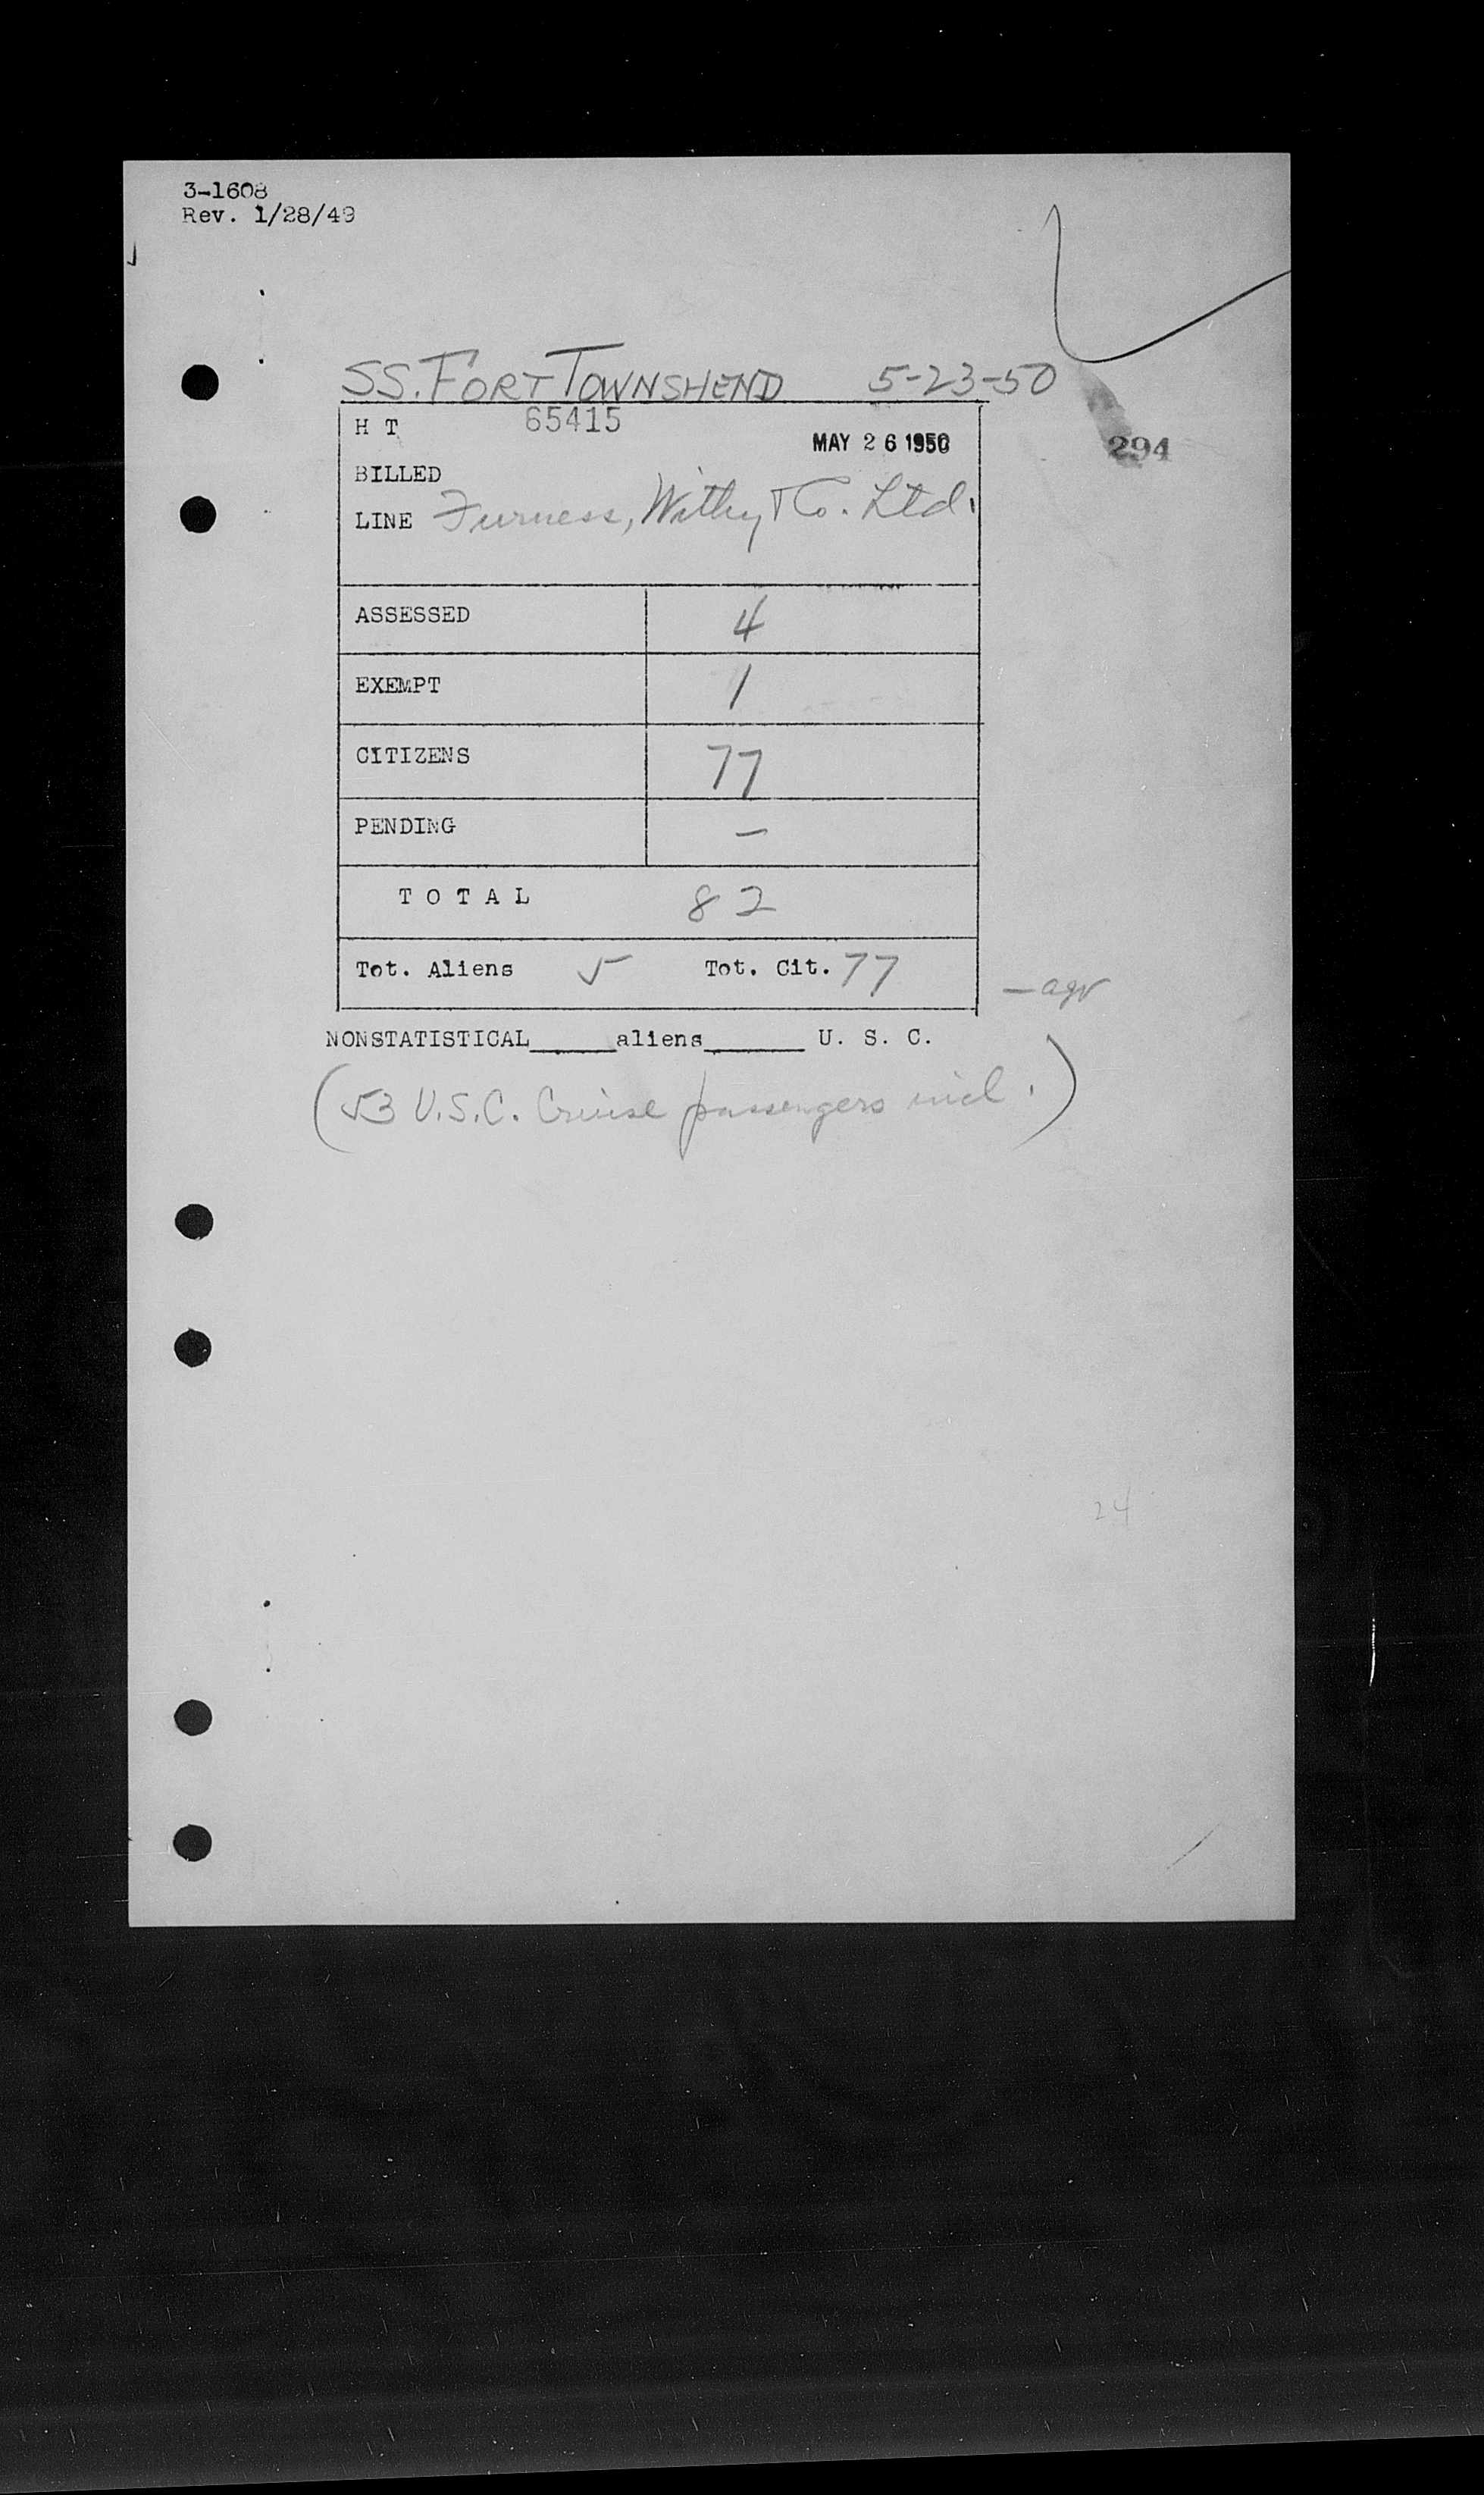 3-1608
Rev. 1/28/49
SS. FORT TOWNSHEND 5-23-50
H T 65415
MAY 26 1950
294
BILLED
LINE Furness, Withy & Co. Ltd.
ASSESSED 4
EXEMPT 1
CITIZENS 77
PENDING –
T O T A L 82
Tot. Aliens 5 Tot. Cit. 77
NONSTATISTICAL______aliens_______ U. S. C.
(53 U.S.C. Cruise passengers incl.)
24